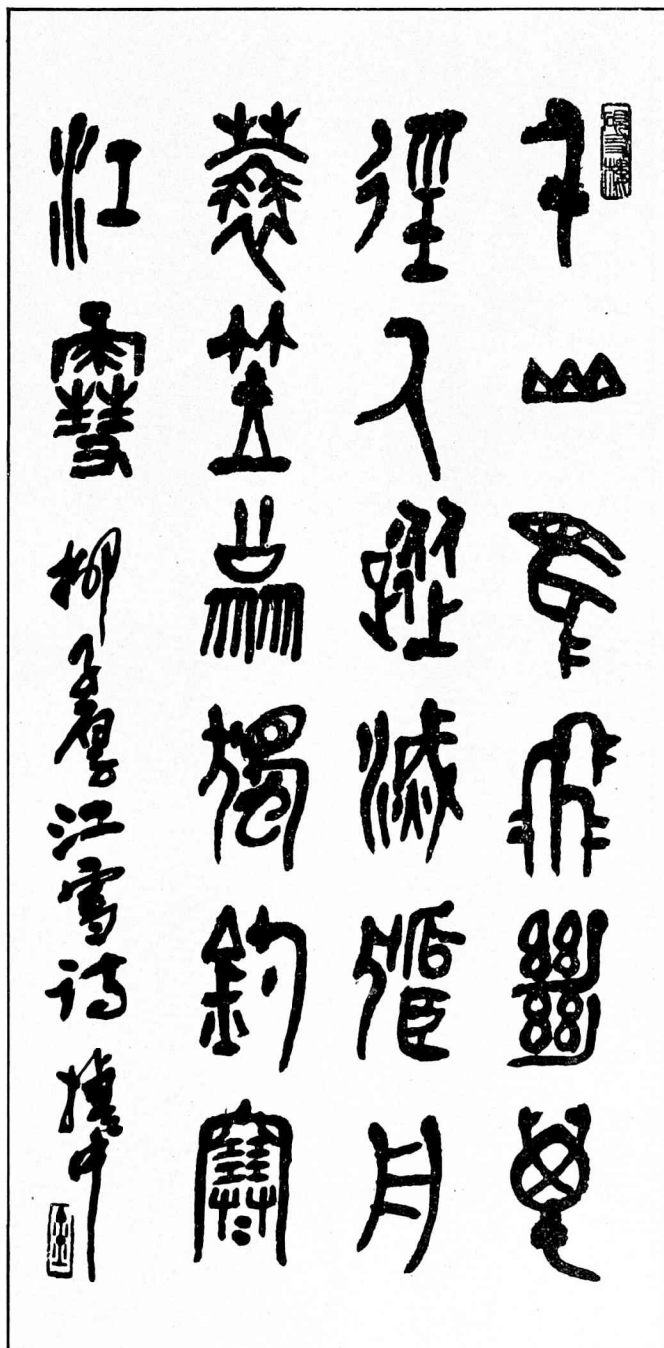 千山鳥飛絕萬
徑人蹤滅孤舟
蓑笠翁獨釣寒
江雪 柳子厚江雪詩 中